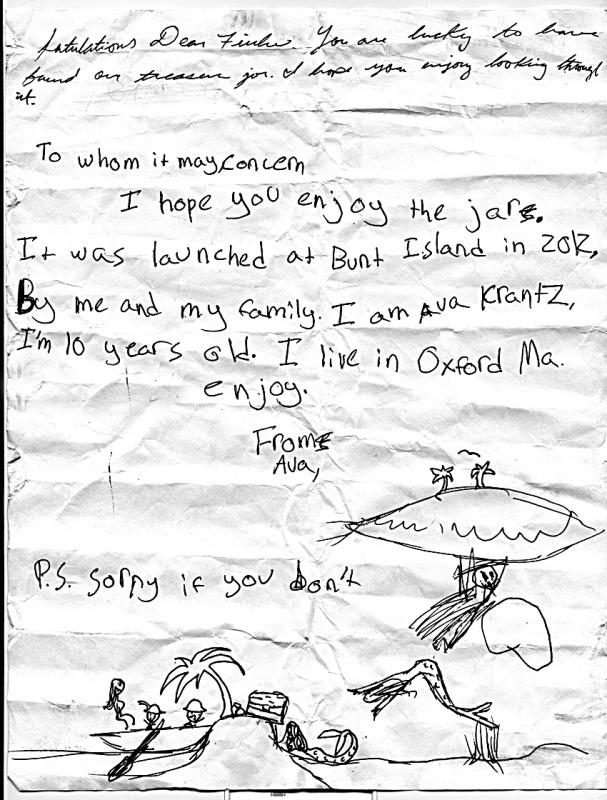 fatulations Dear Finder. You are lucky to have
found our treasure jar. I hope you enjoy looking through
it.
To whom it may concern
I hope you enjoy the jar.
It was launched at Bunt Island in 2012,
By me and my family. I am Ava Krantz,
I'm 10 years old. I live in Oxford Ma.
enjoy.
From
Ava,
P.S. sorry if you don't